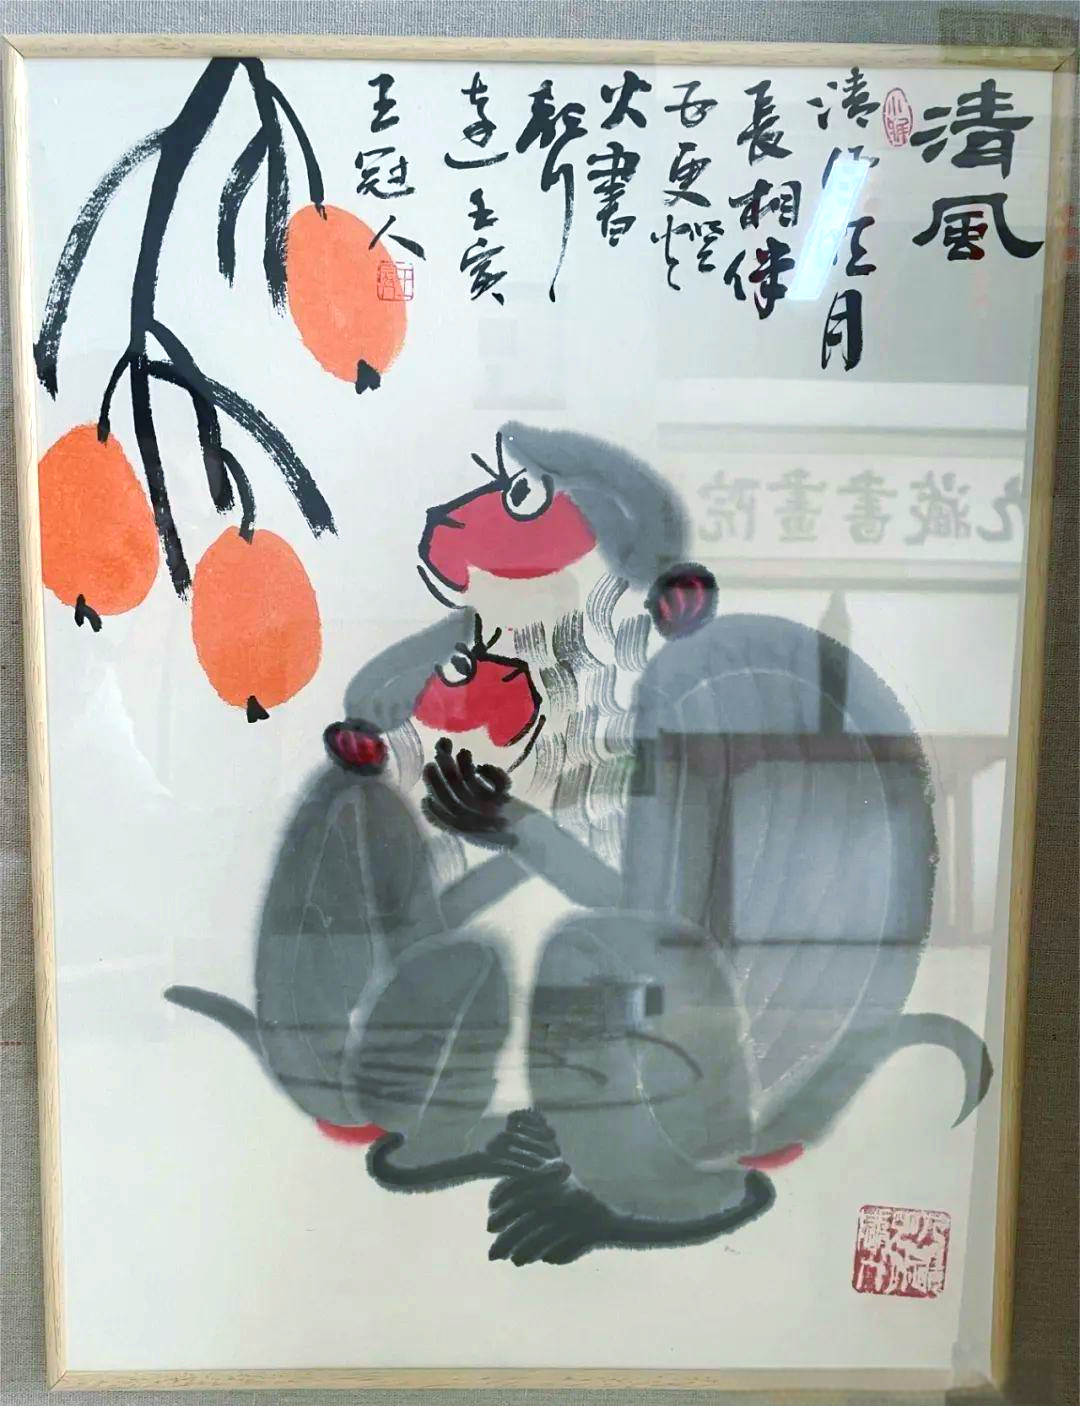 清風
清風明月
長相伴
五更燈
火書
聲
達壬寅
王冠人
藏書畫院